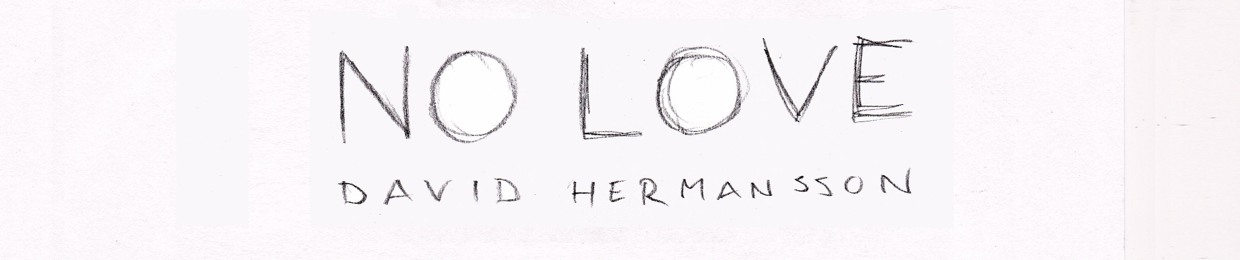 NO LOVE
DAVID HERMANSSON